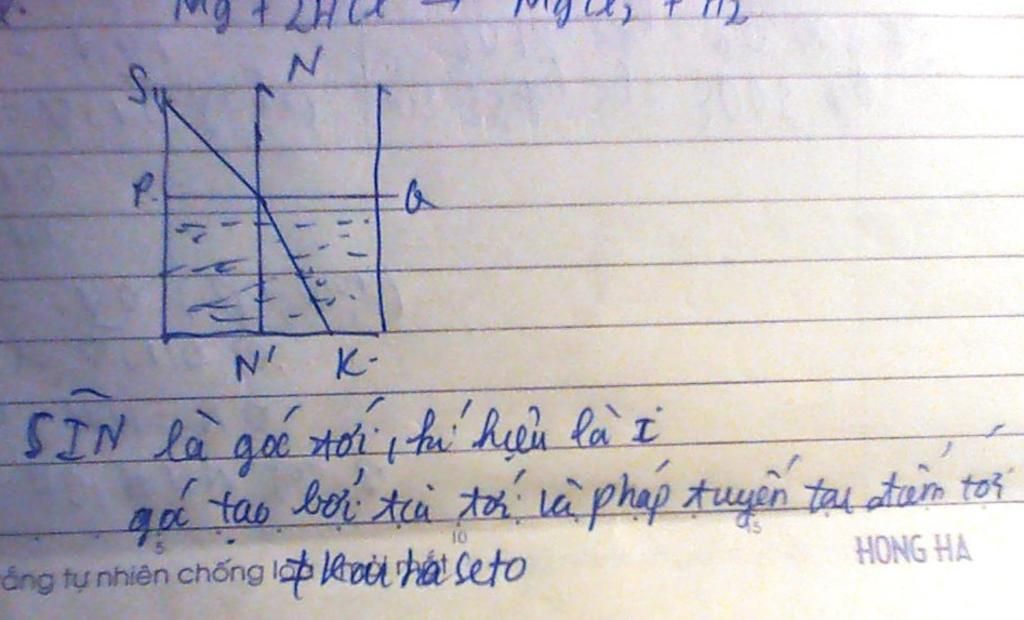 Mg + 2HCl → MgCl₂ + H₂
S
N
P
Q
N'
K
SIN là góc tới, kí hiệu là i
góc tạo bởi tia tới và pháp tuyến tại điểm tới
HONG HA
5
10
15
ống tự nhiên chống